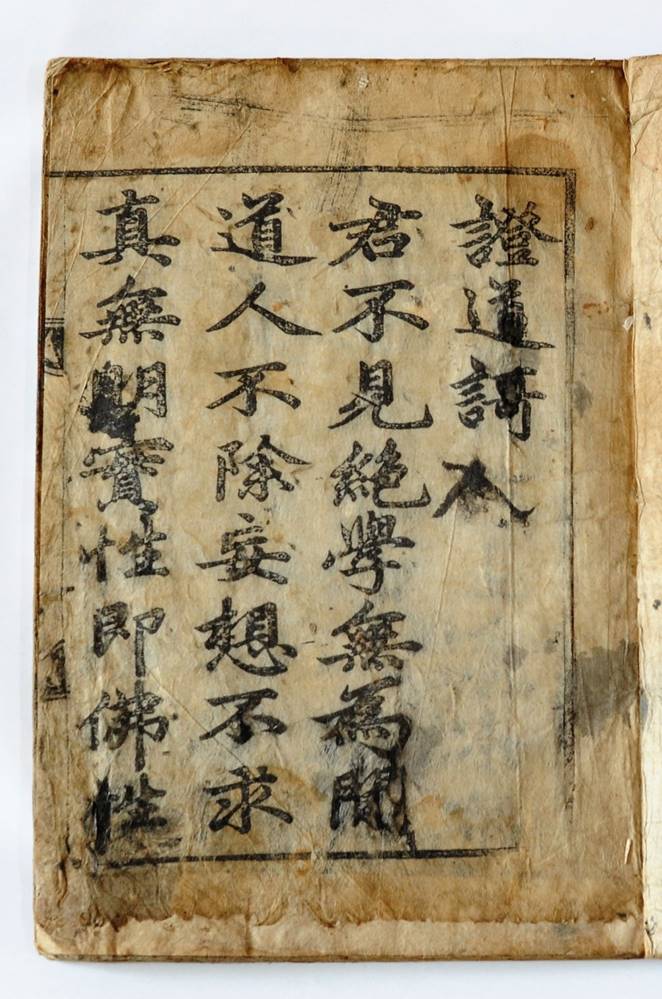 證道訶
君不見絶學無為閒
道人不除妄想不求
真無明實性即佛性